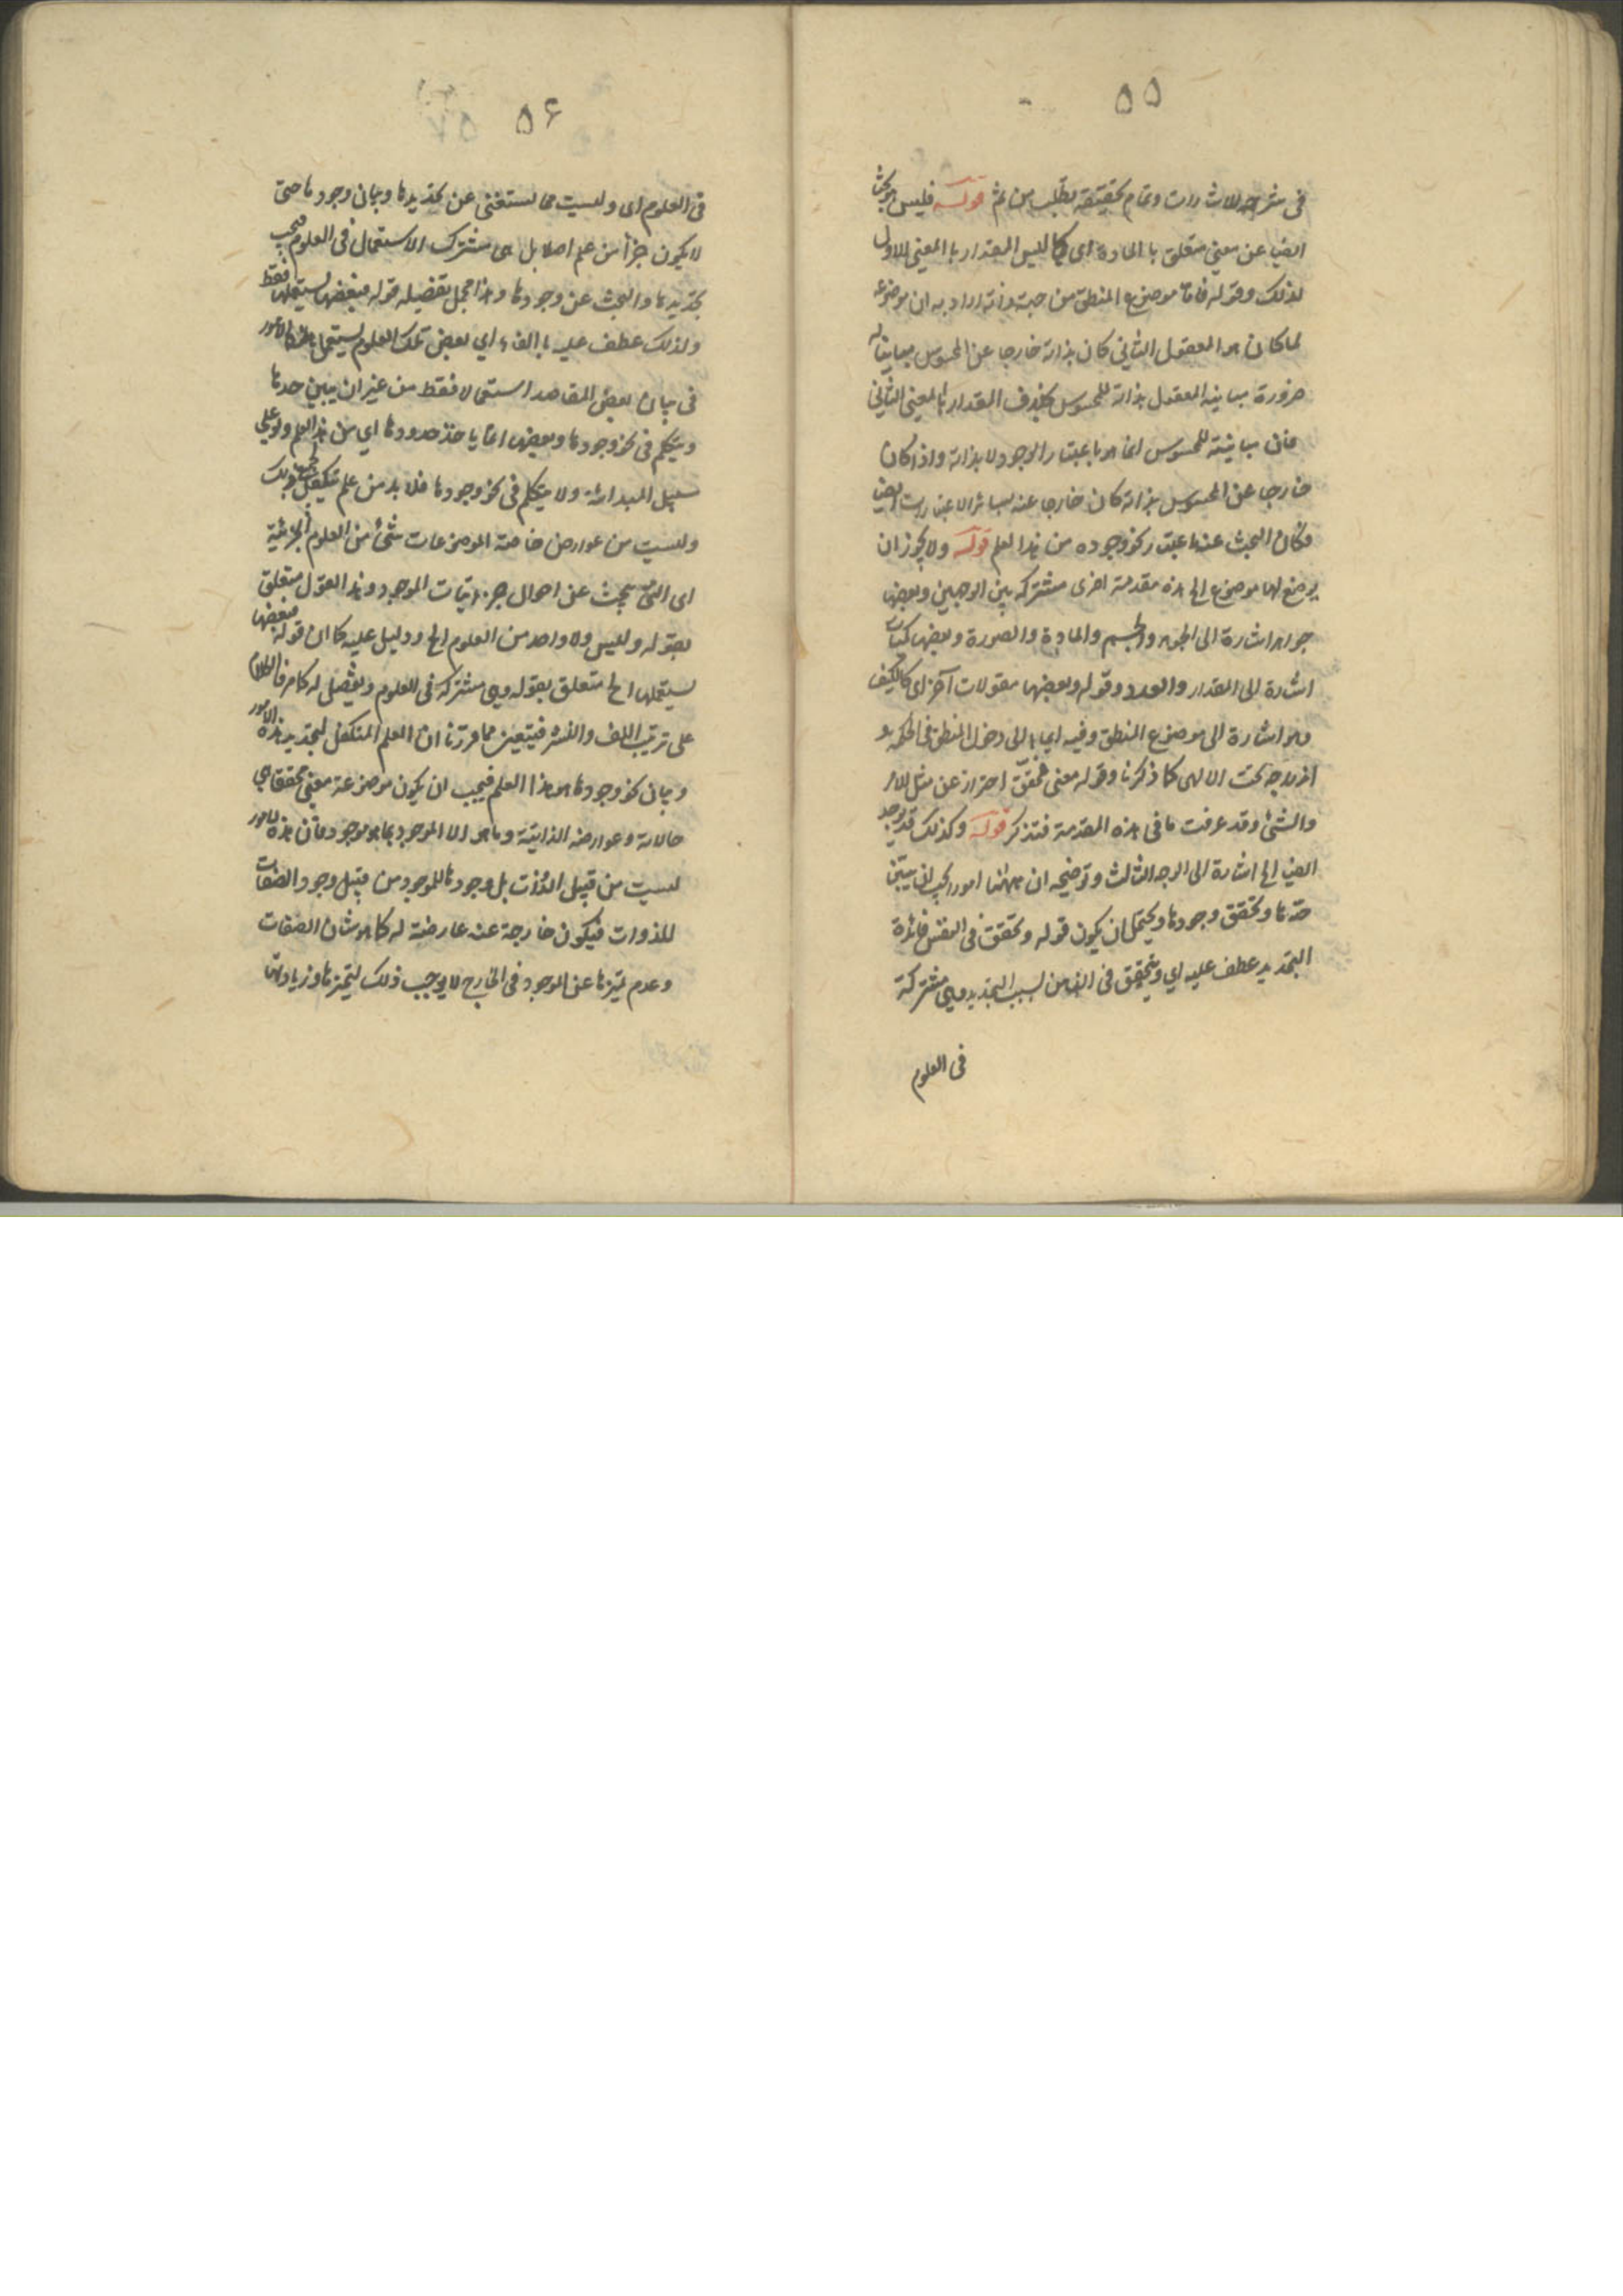 ٥٥
فى شرحه للاشارات وتمام تحقيقه يطلب من ثم قوله فليس هو بحثا
ايضا عن معنى متعلق بالمادة اى كما ليس المقدار بالمعنى الاول
لذلك وقوله فان موضوع المنطق من جهة ذاته اراد به ان موضوعه
لما كان هو المعقول الثانى كان بذاته خارجا عن المحسوس مباينا له
ضرورة مباينه المعقول بذاته للمحسوس بخلاف المقدار بالمعنى الثانى
فان مباينته للمحسوس انما هو باعتبار الوجود لا بذاته واذا كان
خارجا عن المحسوس بذاته كان خارجا عنه بسائر الاعتبارات ايضا
فكان البحث عنه باعتبار نحو وجوده من هذا العلم قوله ولا يجوز ان
يوضع لها موضوع الخ هذه مقدمة اخرى مشتركه بين الوجهين وبعضها
جواهر اشارة الى الجوهر والجسم والمادة والصورة وبعضها كميات
اشارة الى المقدار والعدد وقوله وبعضها مقولات آخر اى كالكيف
وهو اشارة الى موضوع المنطق وفيه ايماء الى دخول المنطق فى الحكمة و
اندراجه تحت الالهى كما ذكرنا وقوله معنى محقق احتراز عن مثل الامر
والشئ وقد عرفت ما فى هذه المقدمة فتذكر قوله وكذلك قد يوجد
ايضا الخ اشارة الى الوجه الثالث وتوضيحه ان ههنا امورا يجب ان يتبين
حدها وتحقق وجودها ويحتمل ان يكون قوله وتحقق فى النفس فائدة
التحديد عطف عليه اي ويتحقق فى الذهن لسبب التحديد وهى مشتركة
فى العلوم
٥۶
فى العلوم اى وليست مما يستغنى عن تحديدها وبيان وجودها حتى
لا يكون جزأ من علم اصلا بل هى مشترك الاستعمال فى العلوم فيجب
تحديدها والبحث عن وجودها وهذا مجمل تفصيله قوله فبعضها يستعملها فقط
ولذلك عطف عليه بالفاء اي بعض تلك العلوم يستعمل هذه الامور
فى بيان بعض المقاصد استعمالا فقط من غير ان يبين حدها
ويتكلم فى نحو وجودها وبعضها انما ياخذ حدودها اي من هذا العلم ولو على
سبيل المبدائة ولا يتكلم فى نحو وجودها فلابد من علم يتكفل بجميع ذلك
وليست من عوارض خاصة لموضوعات شئ من العلوم الجزئية
اى التى تبحث عن احوال جزئيات الموجود وهذا القول متعلق
بقوله وليس ولا واحد من العلوم الخ ودليل عليه كما ان قوله فبعضها
يستعملها الخ متعلق بقوله وهى مشتركة فى العلوم وتفصيل له كما مر فالكلام
على ترتيب اللف والنشر فيتعين مما قررنا ان العلم المتكفل لتحديد هذه الامور
وبيان نحو وجودها هو هذا العلم فيجب ان يكون موضوعه معنى محققا هى
حالاته وعوارضه الذاتية وما هو الا الموجود بما هو موجود فان هذه الامور
ليست من قبيل الذوات بل وجودها للموجود من قبيل وجود الصفات
للذوات فيكون خارجة عنه عارضة له كما هو شان الصفات
وعدم تميزها عن الموجود فى الخارج لا يوجب ذلك لتميزها وزيادتها